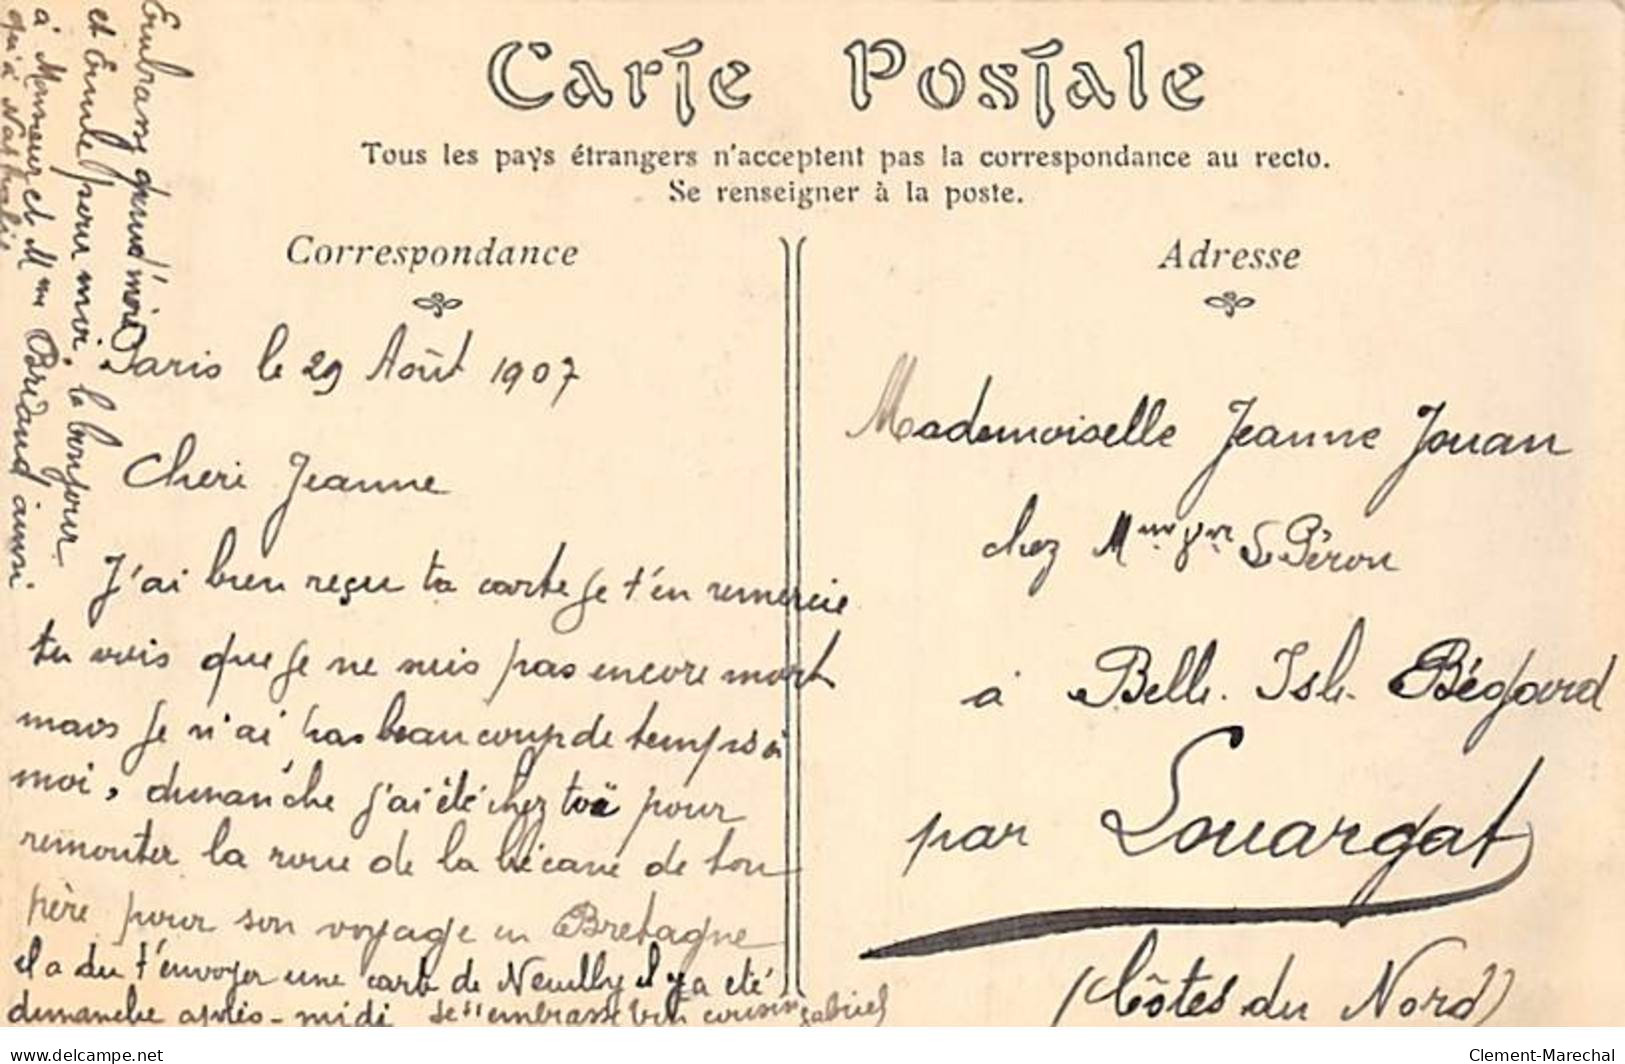 Carte Postale
Tous les pays étrangers n'acceptent pas la correspondance au recto.
Se renseigner à la poste.
Correspondance
Paris le 29 Août 1907
Cheri Jeanne
J'ai bien reçu ta carte je t'en remercie
tu vois que je ne suis pas encore mort
mais je n'ai pas beaucoup de temps à
moi, dimanche j'ai été chez toi pour
remonter la roue de la bécane de ton
père pour son voyage en Bretagne
il a du t'envoyer une carte de Neuilly il y a été
dimanche après-midi Je t'embrasse ton cousin Gabriel
Embrasse grand'mère
et Emile pour moi. le bonjour
à Monsieur et Mme Briand ainsi
qu'à Nathalie
Adresse
Mademoiselle Jeanne Jouan
chez Mme Le Péron
à Belle-Isle-Bégard
par Louargat
(Côtes du Nord)
Clement-Marechal
www.delcampe.net